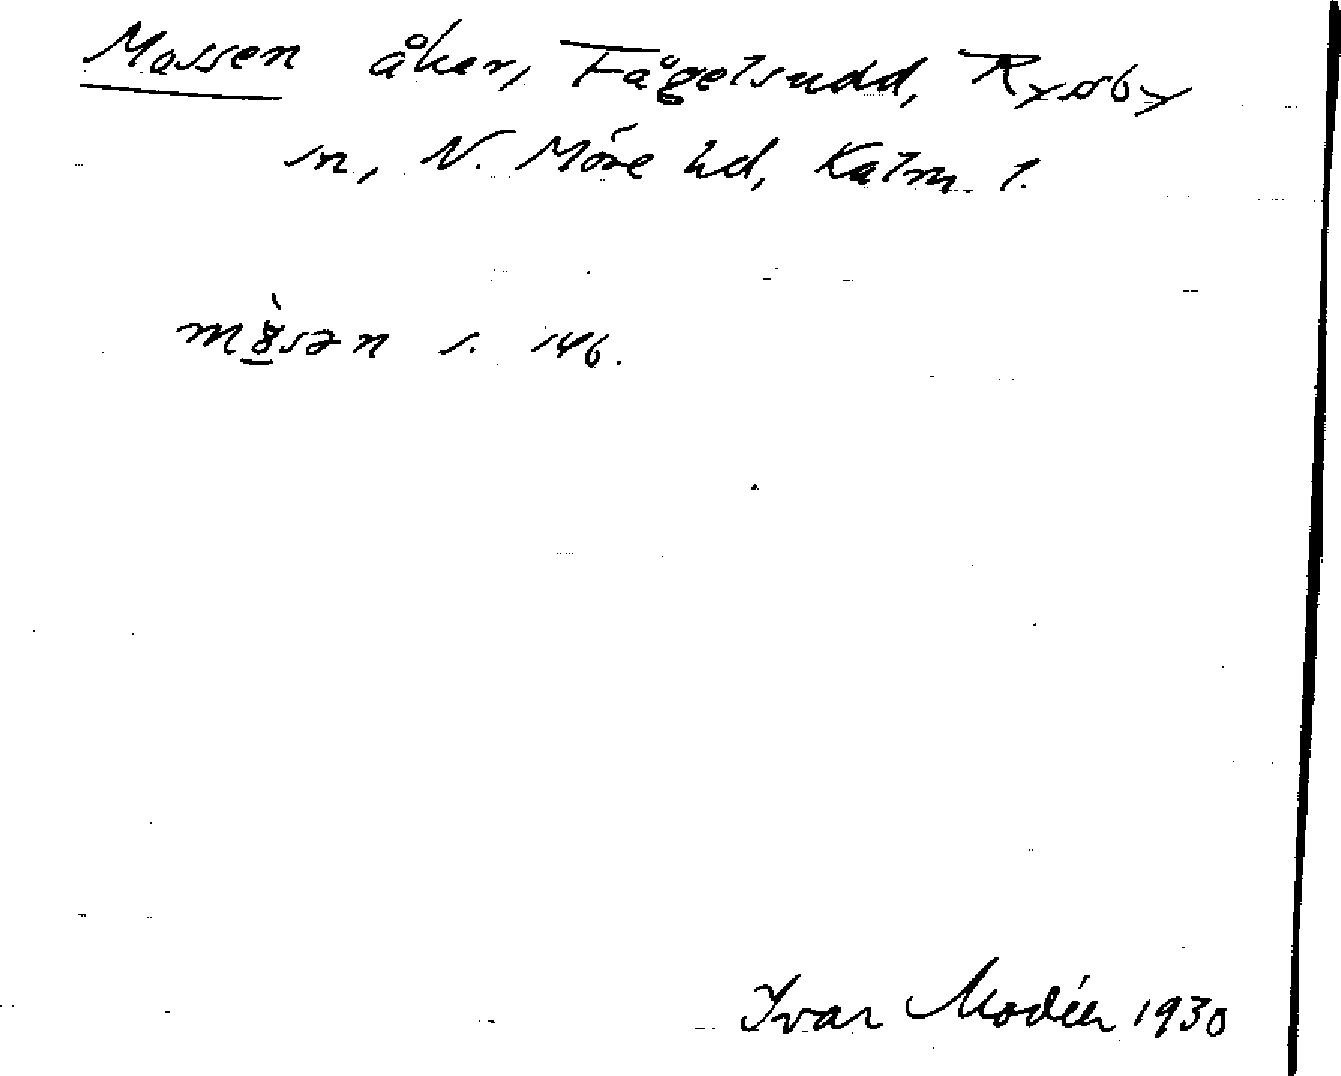 Mossen åker, Fågelsudd, Ryssby
sn, N. Möre hd, Kalm. l.
s. 146.
Ivar Modéer 1930